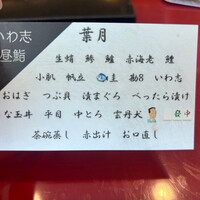 いわ志
昼鮨
葉月
生蛸 鯵 鱸 赤海老 鯉
小肌 帆立 圭 勘8 いわ志
おはぎ つぶ貝 漬まぐろ べったら漬け
な玉丼 平目 中とろ 雲丹犬 登中
茶碗蒸し 赤出汁 お口直し